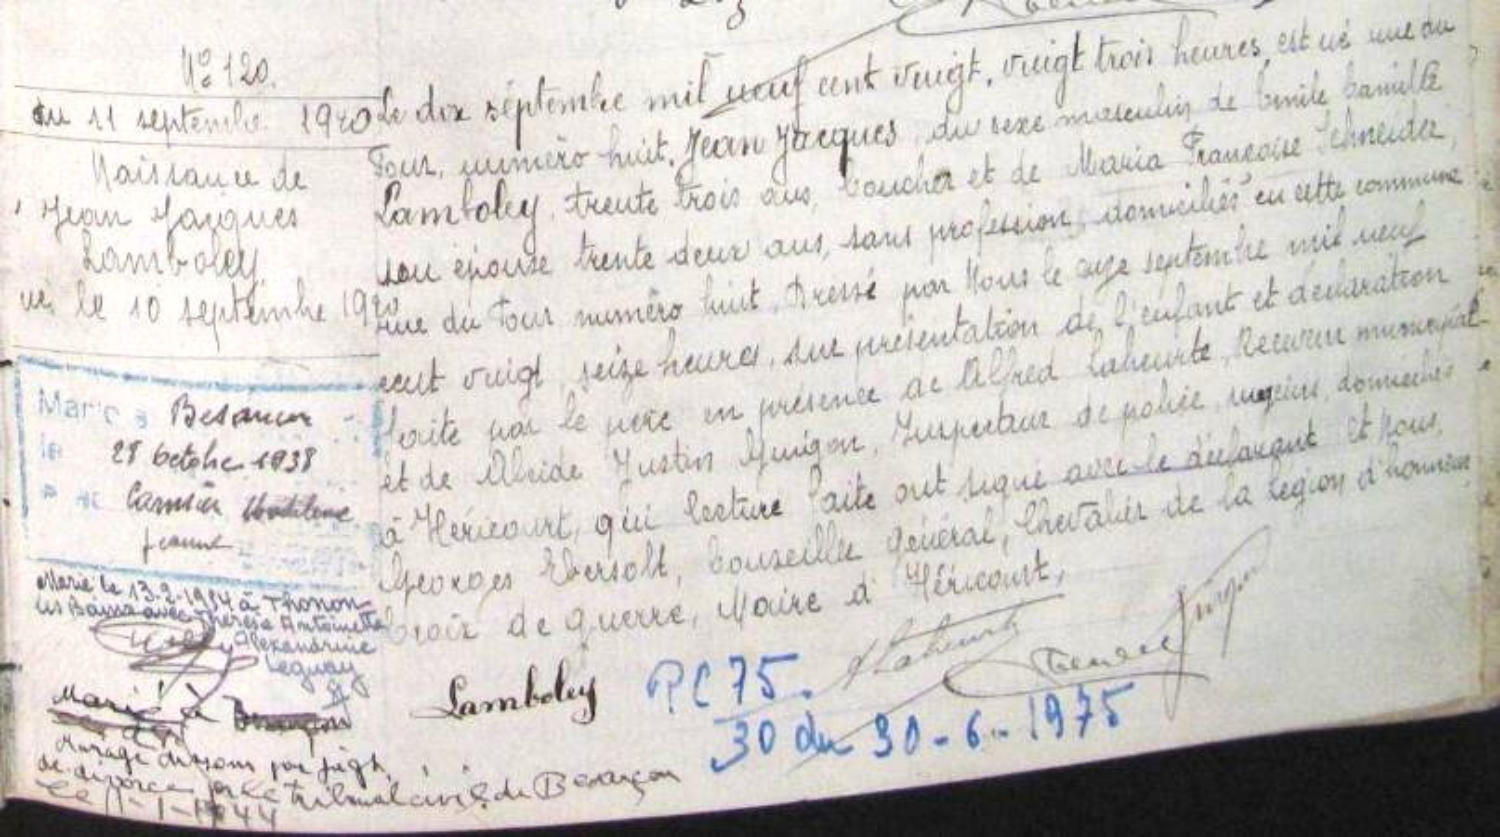 Nº 120.
du 11 septembre 1920
Naissance de
Jean Jacques
Lamboley
né le 10 septembre 1920
Marié à Besançon
le 28 Octobre 1938
Jeanne
Marié le 13-2-1954 à Thonon
les Bains avec Thérèse Antoinette
Alexandrine
Leguay
Marié à Besançon
Mariage dissous par jugt
de divorce par le tribunal civil de Besançon
le 11-1-1944
Le dix septembre mil neuf cent vingt, vingt trois heures, est né rue du
Four, numéro huit, Jean Jacques, du sexe masculin de Emile Camille
Lamboley, trente trois ans, boucher et de Maria Françoise Schneider,
son épouse trente deux ans, sans profession, domiciliés en cette commune
rue du Four numéro huit. Dressé par Nous le onze septembre mil neuf
cent vingt, seize heures, sur présentation de l'enfant et déclaration
faite par le père en présence de Alfred Laheurte, Receveur municipal
et de Alcide Justin Guigon, Inspecteur de police, majeurs, domiciliés
à Héricourt, qui lecture faite ont signé avec le déclarant et Nous,
Georges Ebersolt, Conseiller Général, Chevalier de la Légion d'honneur
Croix de guerre, Maire d'Héricourt,
Lamboley
ALaheurte
PC 75.
30 du 30-6-1975